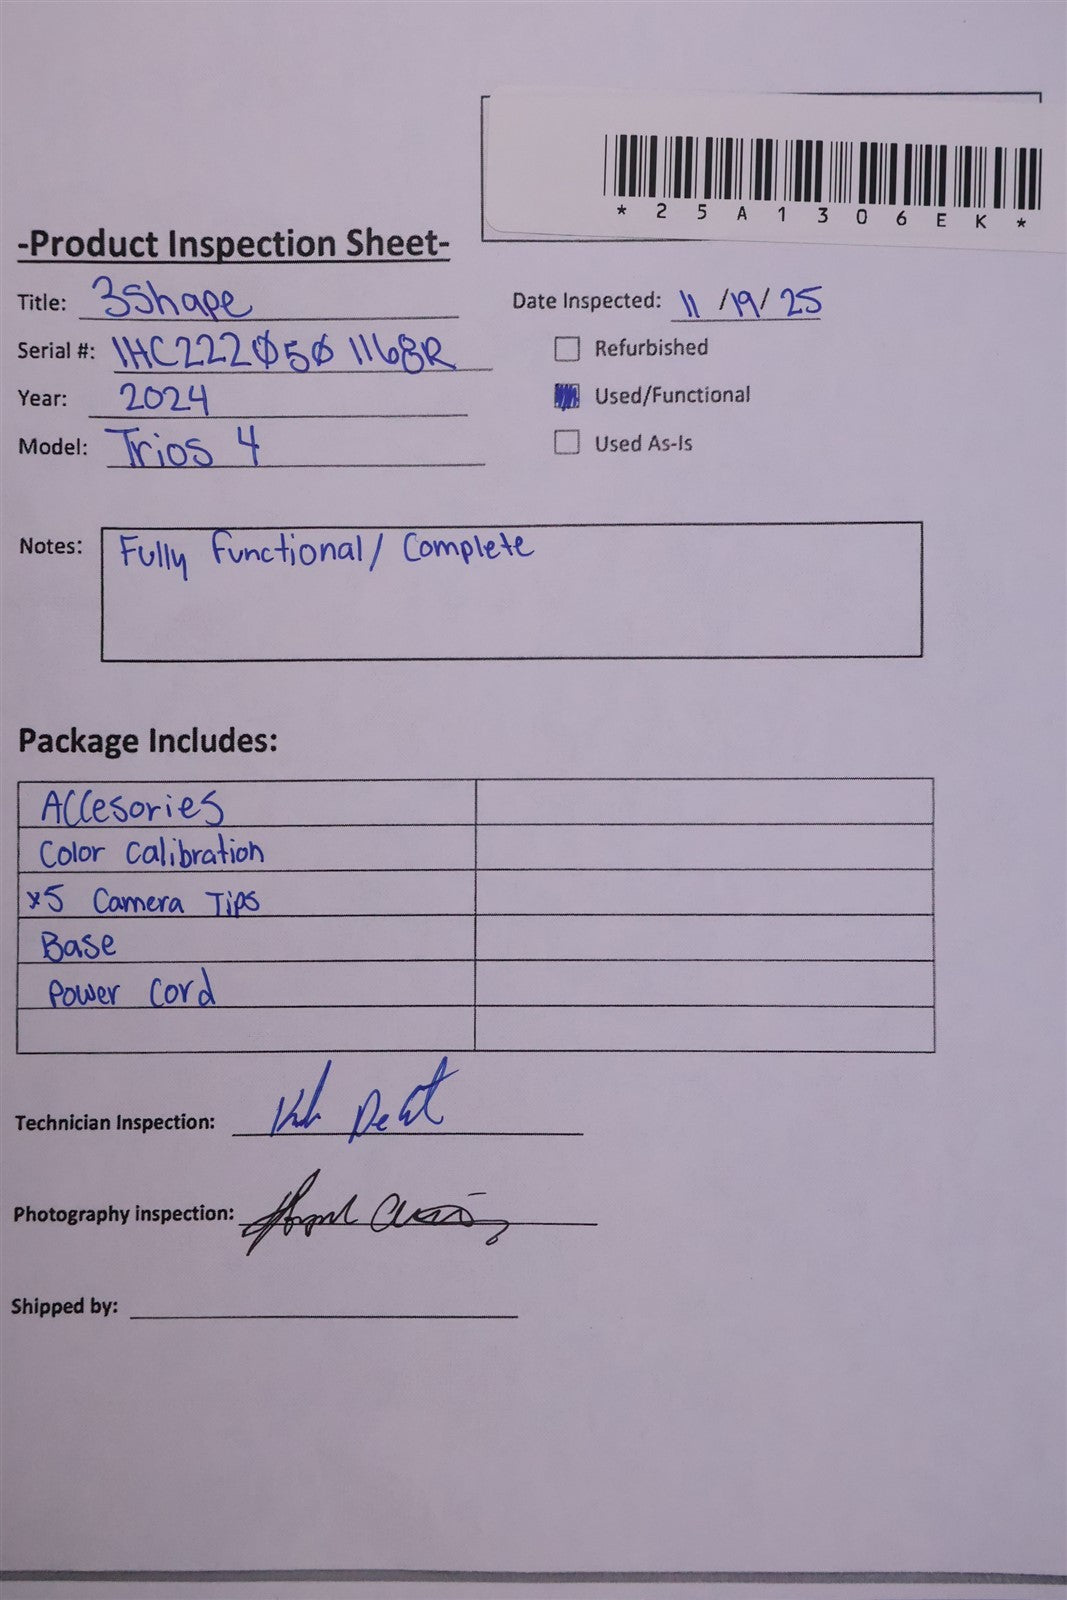 *25A1306EK*
-Product Inspection Sheet-
Title: 3Shape
Date Inspected: 11/19/25
Serial #: 1HC222Ø5Ø1168R
Refurbished
Year: 2024
Used/Functional
Model: Trios 4
Used As-Is
Notes: Fully functional/ Complete
Package Includes:
Accesories
Color Calibration
x5 Camera Tips
Base
Power Cord
Technician Inspection:
Photography inspection:
Shipped by: